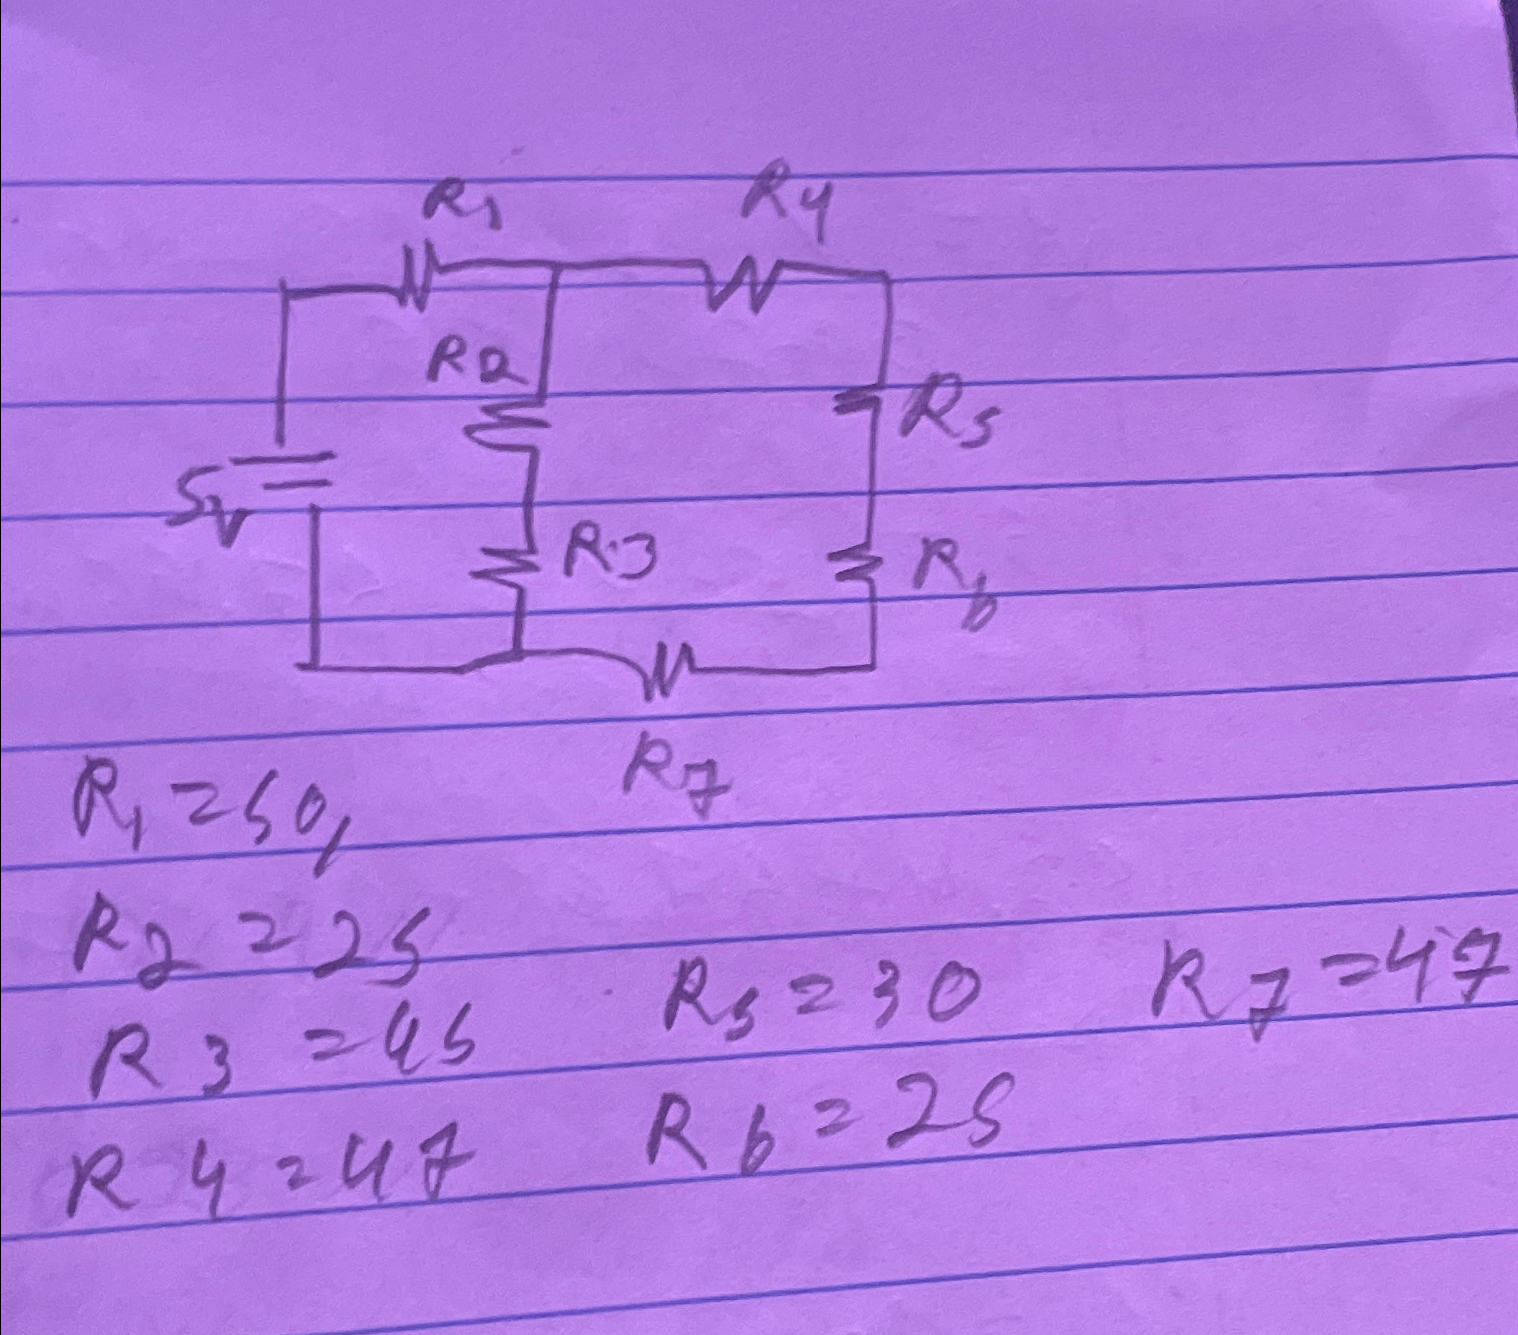 R1 R4
R2
R5
5v
R3
R6
R7
R1 = 50,
R2 = 25
R5 = 30 R7 = 47
R3 = 45
R6 = 25
R4 = 47